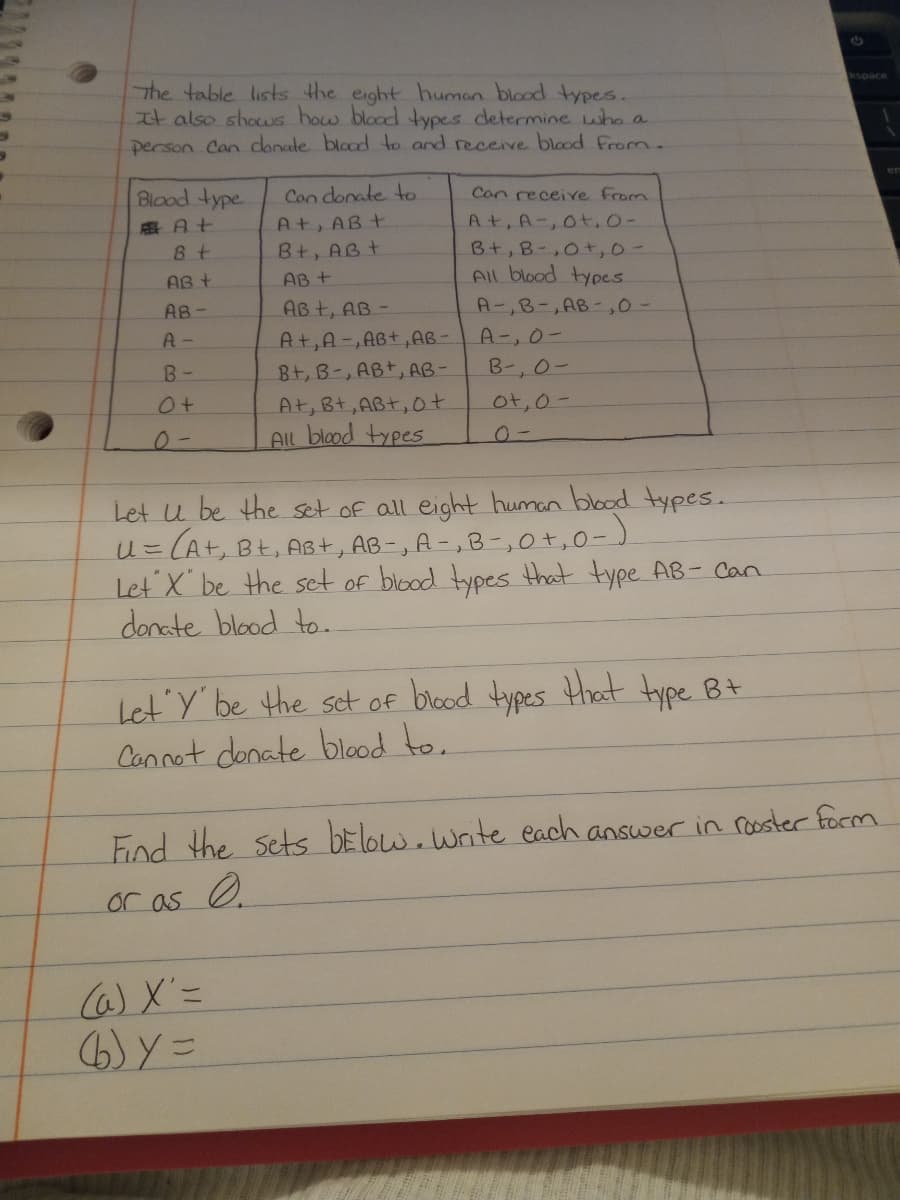 The table lists the eight human blood types.
It also shows how blood types determine who a
person can donate blood to and receive blood from.
Blood type Can donate to Can receive from
A+ A+, AB+ A+, A-, O+, O-
B+ B+, AB+ B+, B-, O+, O-
AB+ AB+ All blood types
AB- AB+, AB- A-, B-, AB-, O-
A- A+, A-, AB+, AB- A-, O-
B- B+, B-, AB+, AB- B-, O-
O+ A+, B+, AB+, O+ O+, O-
O- All blood types O-
Let U be the set of all eight human blood types.
U = (A+, B+, AB+, AB-, A-, B-, O+, O-)
Let "X" be the set of blood types that type AB- can
donate blood to.
Let "Y" be the set of blood types that type B+
Cannot donate blood to.
Find the sets bElow. Write each answer in rooster form
or as Ø.
(a) X' =
(b) Y =